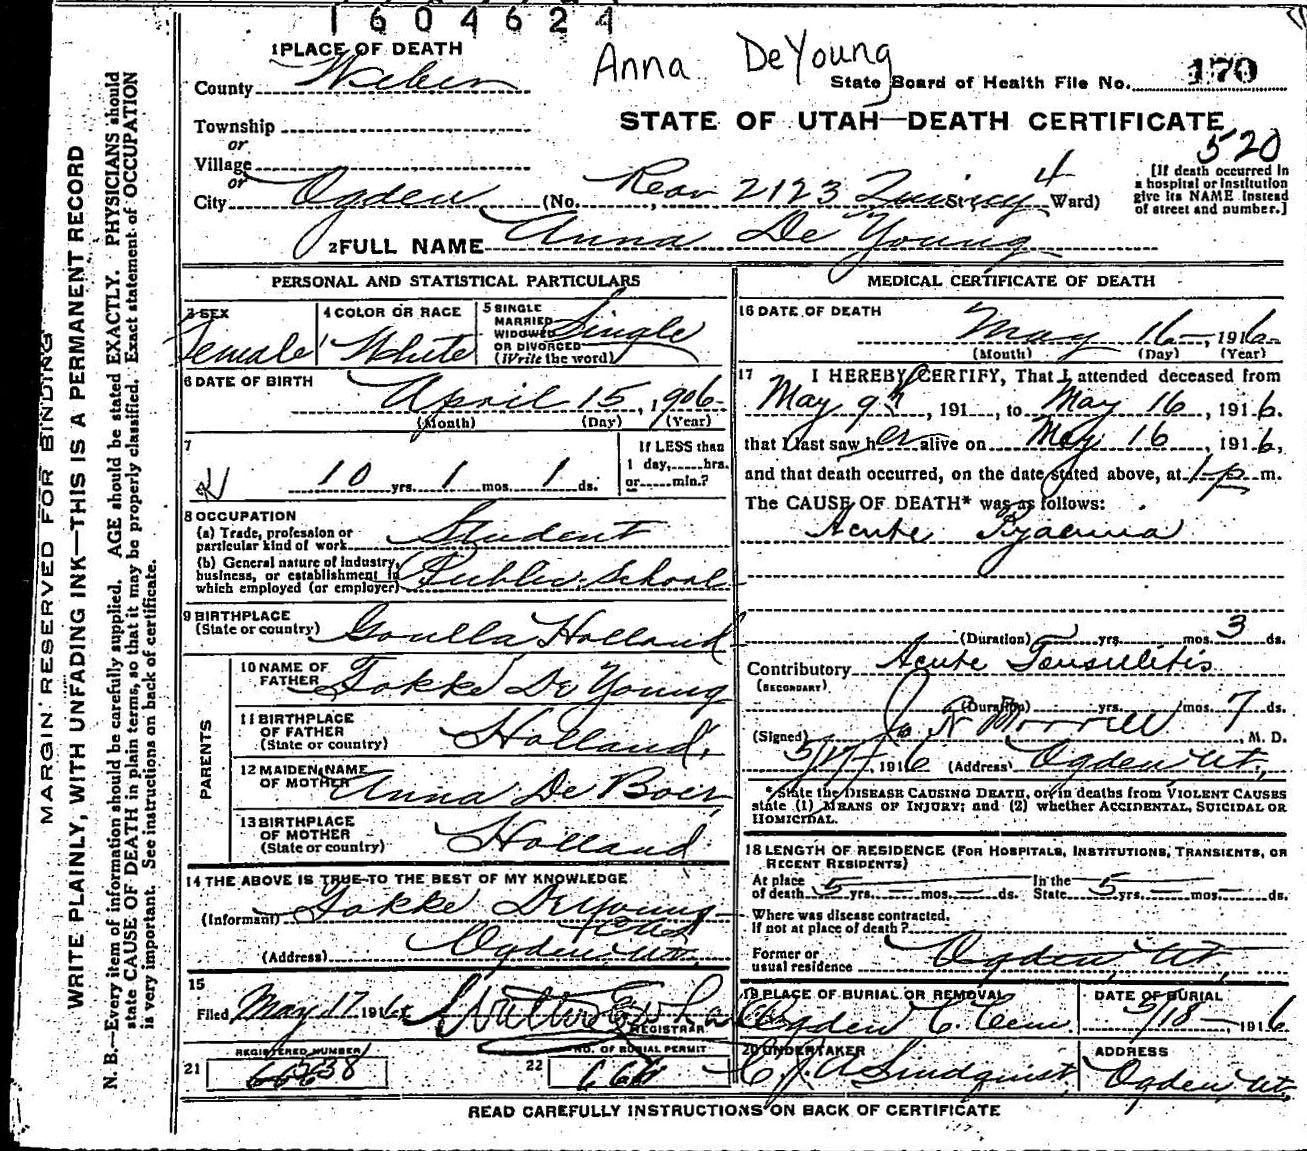 1604624
Anna DeYoung
1 PLACE OF DEATH
County Weber
State Board of Health File No. 170
Township
or
Village
or
City Ogden (No. Rear 2123 Quincy St; 4 Ward)
STATE OF UTAH—DEATH CERTIFICATE
520
[If death occurred in
a hospital or institution
give its NAME instead
of street and number.]
2 FULL NAME Anna De Young
PERSONAL AND STATISTICAL PARTICULARS
3 SEX
Female
4 COLOR OR RACE
White
5 SINGLE
MARRIED
WIDOWED
OR DIVORCED
(Write the word)
Single
6 DATE OF BIRTH
April 15, 1906
(Month) (Day) (Year)
7
10 yrs. 1 mos. 1 ds.
If LESS than
1 day, hrs.
or min.?
8 OCCUPATION
(a) Trade, profession or
particular kind of work Student
(b) General nature of industry,
business, or establishment in
which employed (or employer) Public School
9 BIRTHPLACE
(State or country) Holland
PARENTS
10 NAME OF
FATHER Fokke De Young
11 BIRTHPLACE
OF FATHER
(State or country) Holland
12 MAIDEN NAME
OF MOTHER Anna De Boer
13 BIRTHPLACE
OF MOTHER
(State or country) Holland
14 THE ABOVE IS TRUE TO THE BEST OF MY KNOWLEDGE
(Informant) Fokke De Young
(Address) Ogden Ut.
15
Filed May 17 1916
REGISTRAR
21 REGISTERED NUMBER
22 NO. OF BURIAL PERMIT
MEDICAL CERTIFICATE OF DEATH
16 DATE OF DEATH
May 16, 1916
(Month) (Day) (Year)
17 I HEREBY CERTIFY, That I attended deceased from
May 9th, 191 , to May 16, 1916.
that I last saw her alive on May 16, 1916,
and that death occurred, on the date stated above, at 1 p m.
The CAUSE OF DEATH* was as follows:
Acute Pyaemia
(Duration) yrs. mos. 3 ds.
Contributory Acute Tonsulitis
(SECONDARY)
(Duration) yrs. mos. 7 ds.
(Signed) Jo R Morrell, M. D.
5/17, 1916 (Address) Ogden Ut,
*State the DISEASE CAUSING DEATH, or, in deaths from VIOLENT CAUSES
state (1) MEANS OF INJURY; and (2) whether ACCIDENTAL, SUICIDAL OR
HOMICIDAL.
18 LENGTH OF RESIDENCE (FOR HOSPITALS, INSTITUTIONS, TRANSIENTS, OR
RECENT RESIDENTS)
At place In the
of death 5 yrs. — mos. — ds. State 5 yrs. — mos. — ds.
Where was disease contracted,
If not at place of death?
Former or
usual residence Ogden, Ut,
19 PLACE OF BURIAL OR REMOVAL
Ogden C. Cem
DATE OF BURIAL
5/18 1916
20 UNDERTAKER
C. J. A Lindquist
ADDRESS
Ogden, Ut,
READ CAREFULLY INSTRUCTIONS ON BACK OF CERTIFICATE
MARGIN RESERVED FOR BINDING
WRITE PLAINLY, WITH UNFADING INK—THIS IS A PERMANENT RECORD
N. B.—Every item of information should be carefully supplied. AGE should be stated EXACTLY. PHYSICIANS should
state CAUSE OF DEATH in plain terms, so that it may be properly classified. Exact statement of OCCUPATION
is very important. See instructions on back of certificate.